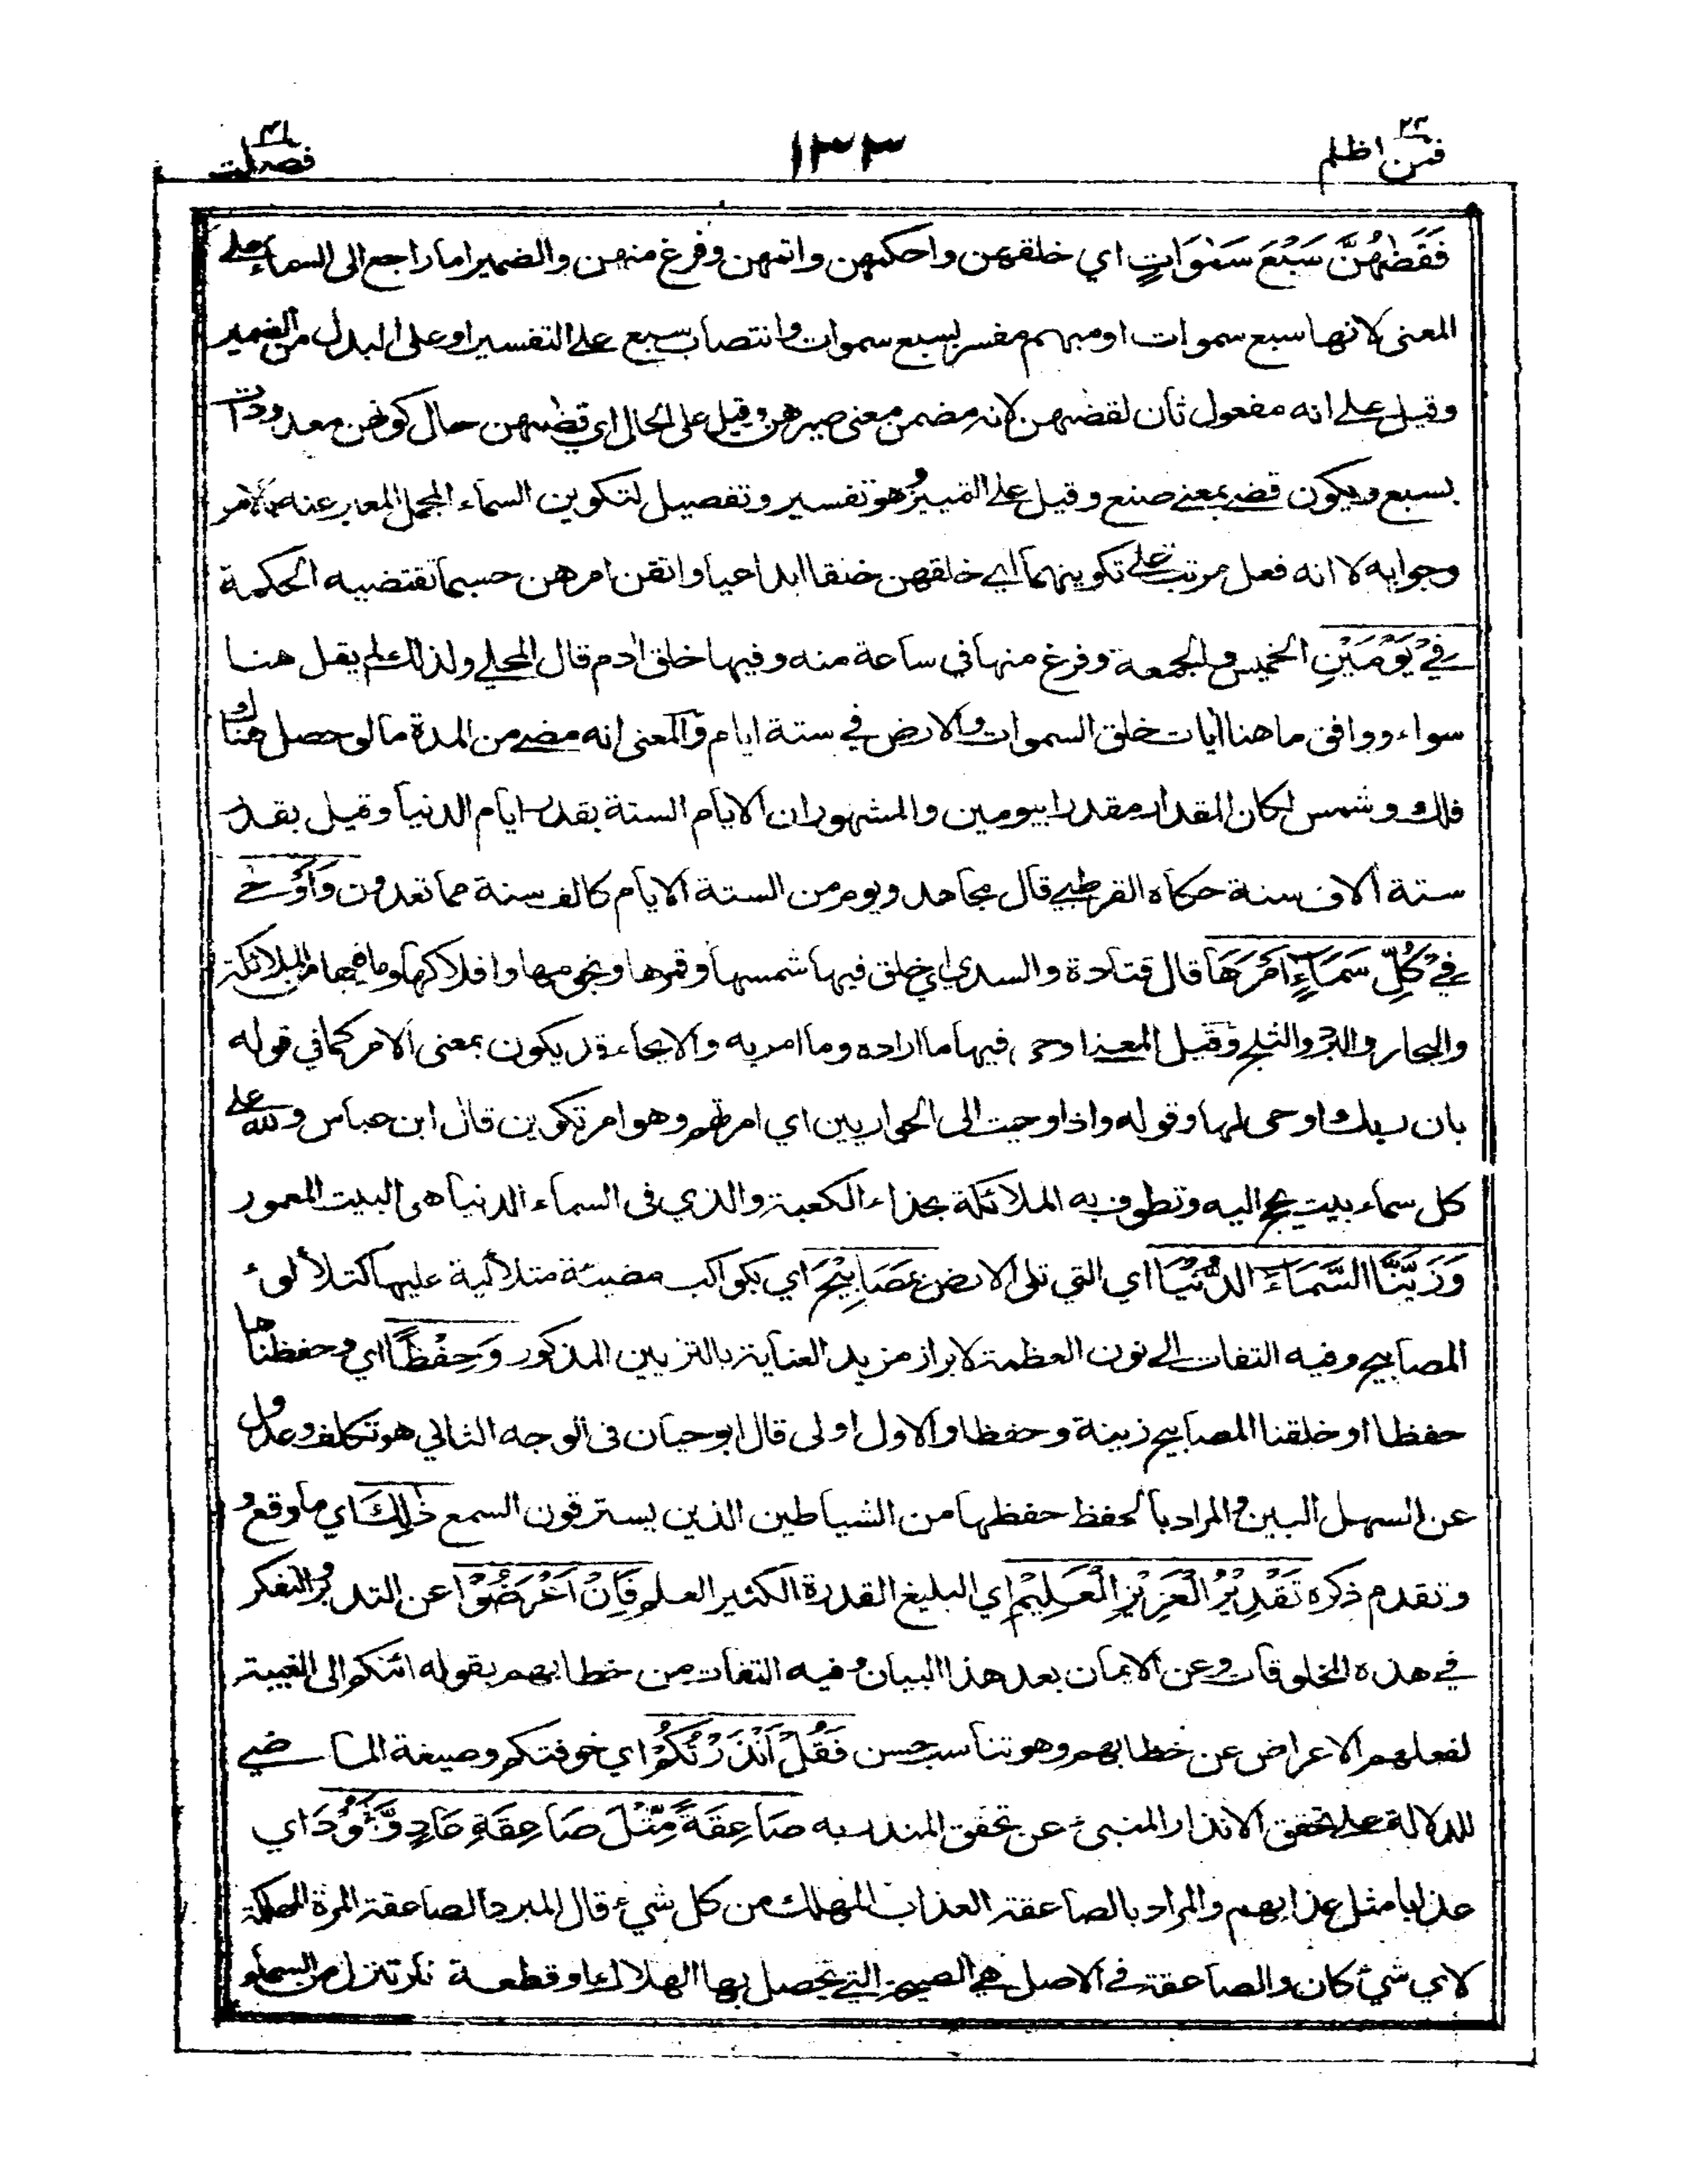 فمن اظلم ٢٤
١٣٣
فصلت ٤١
فَقَضٰهُنَّ سَبْعَ سَمٰوَاتٍ اي خلقهن واحكمهن واتمهن وفرغ منهن والضمير اما راجع الى السماء على
المعنى لانها سبع سموات او مبهم مفسر بسبع سموات وانتصاب سبع على التفسير او على البدل من الضمير
وقيل على انه مفعول ثان لقضهن لانه مضمن معنى صيرهن وقيل على الحال اي قضهن حال كونهن معدودات
بسبع ويكون قضى بمعنى صنع وقيل على التمييز وهو تفسير وتفصيل لتكوين السماء المجمل المعبر عنه بالامر
وجوابه لا انه فعل مرتب على تكوينهما اي خلقهن خلقا ابداعيا واتقن امرهن حسبما تقتضيه الحكمة
فِيْ يَوْمَيْنِ الخميس والجمعة وفرغ منها في ساعة منه وفيها خلق ادم قال المحلي ولذلك لم يقل هنا
سواء ووافق ما هنا أيات خلق السموات والارض في ستة ايام والمعنى انه مضى من المدة ما لو حصل هناك
فلك وشمس لكان المقدار مقدرا بيومين والمشهور ان الايام الستة بقدر ايام الدنيا وقيل بقدر
ستة ألاف سنة حكاه القرطبي قال مجاهد ويوم من الستة الايام كالف سنة مما تعدون وَأَوْحٰى
فِيْ كُلِّ سَمَآءٍ اَمْرَهَا قال قتادة والسدي اي خلق فيها شمسها وقمرها ونجومها وافلاكها وما فيها من الملائكة
والبحار والبرد والثلج وقيل المعنى اوحى فيها ما اراده وما امر به والايحاء قد يكون بمعنى الامر كما في قوله
بان ربك اوحى لها وقوله واذ اوحيت الى الحواريين اي امرتهم وهو امر تكوين قال ابن عباس ولله على
كل سماء بيت يحج اليه وتطوف به الملائكة بحذاء الكعبة والذي في السماء الدنيا هى البيت المعمور
وَزَيَّنَّا السَّمَآءَ الدُّنْيَا اي التي تلى الارض بِمَصَابِيْحَ اي بكواكب مضيئة متلألئة عليها كتلألوء
المصابيح وفيه التفات الى نون العظمة لابراز مزيد العناية بالتزيين المذكور وَحِفْظًا اي وحفظناها
حفظا او خلقنا المصابيح زينة وحفظا والاول اولى قال ابو حيان فى الوجه الثاني هو تكلف وعدول
عن السهل البين والمراد بالحفظ حفظها من الشياطين الذين يسترقون السمع ذٰلِكَ اي ما وقع و
وتقدم ذكره تَقْدِيْرُ الْعَزِيْزِ الْعَلِيْمِ اي البليغ القدرة الكثير العلم فَاِنْ اَعْرَضُوْا عن التدبر والتفكر
في هذه المخلوقات وعن الايمان بعد هذا البيان وفيه التفات من خطابهم بقوله ائنكم الى الغيبة
لفعلهم الاعراض عن خطابهم وهو تناسب حسن فَقُلْ اَنْذَرْتُكُمْ اي خوفتكم وصيغة الماضي
للدلالة على تحقق الانذار المنبئ عن تحقق المنذر به صَاعِقَةً مِّثْلَ صَاعِقَةِ عَادٍ وَّثَمُوْدَ اي
عذابا مثل عذابهم والمراد بالصاعقة العذاب المهلك من كل شيء قال المبرد الصاعقة المرة المهلكة
لاي شيء كان والصاعقة في الاصل هي الصيحة التي تحصل بها الهلاك او قطعة نار تنزل من السماء و